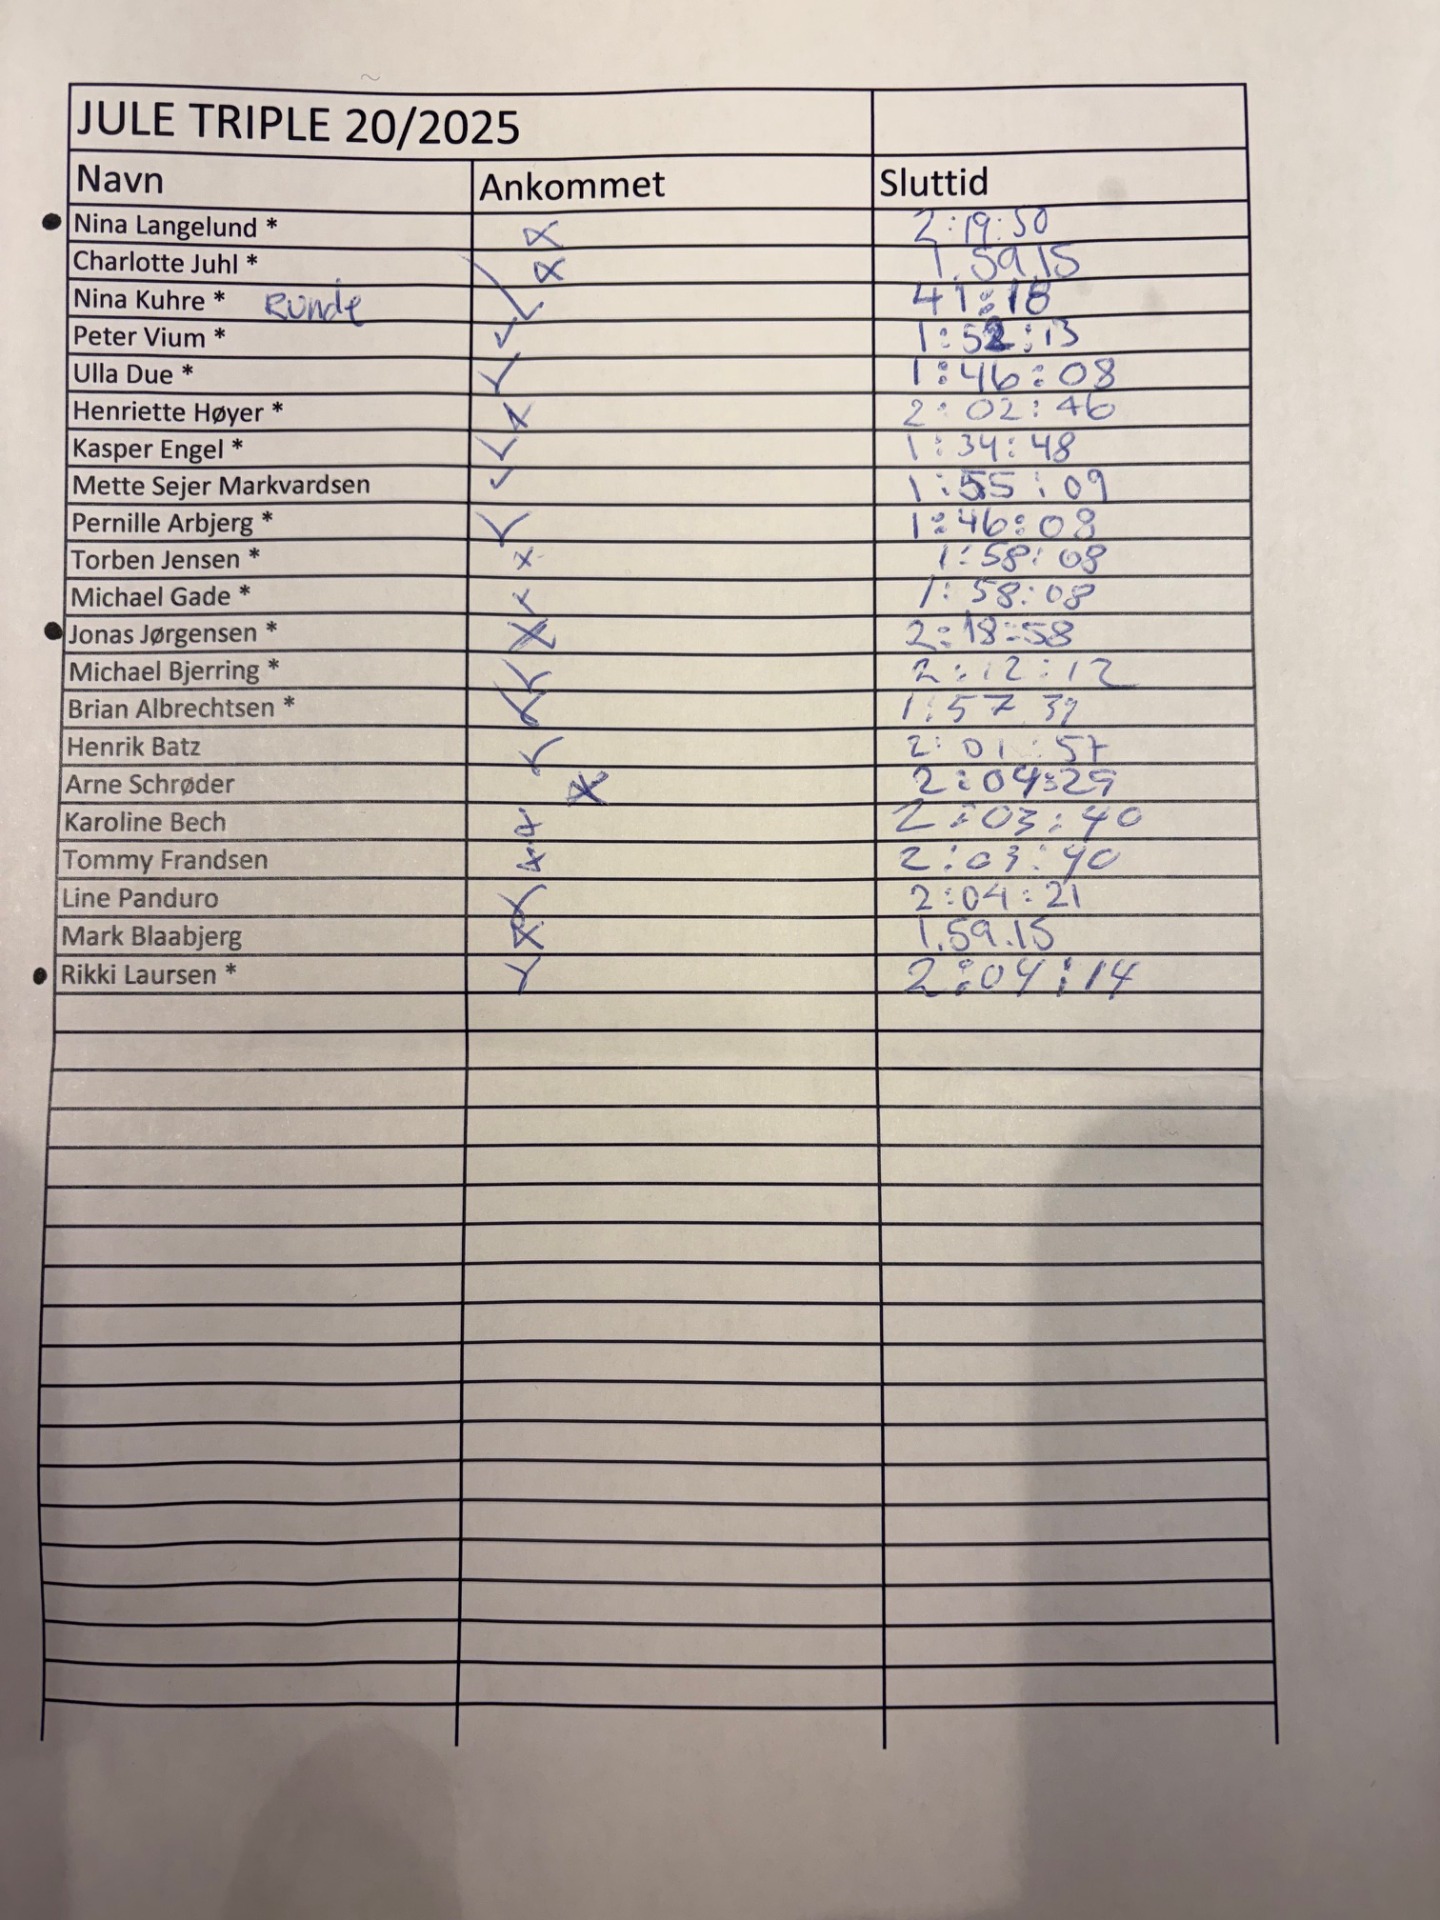 JULE TRIPLE 20/2025
Navn Ankommet Sluttid
Nina Langelund * 2:19:50
Charlotte Juhl * 1.59.15
Nina Kuhre * Runde 41:18
Peter Vium * 1:52:13
Ulla Due * 1:46:08
Henriette Høyer * 2:02:46
Kasper Engel * 1:34:48
Mette Sejer Markvardsen 1:55:09
Pernille Arbjerg * 1:46:08
Torben Jensen * 1:58:08
Michael Gade * 1:58:08
Jonas Jørgensen * 2:18:58
Michael Bjerring * 2:12:12
Brian Albrechtsen * 1:57
Henrik Batz 2:01:57
Arne Schrøder 2:04:29
Karoline Bech 2:03:40
Tommy Frandsen 2:03:40
Line Panduro 2:04:21
Mark Blaabjerg 1.59.15
Rikki Laursen * 2:04:14